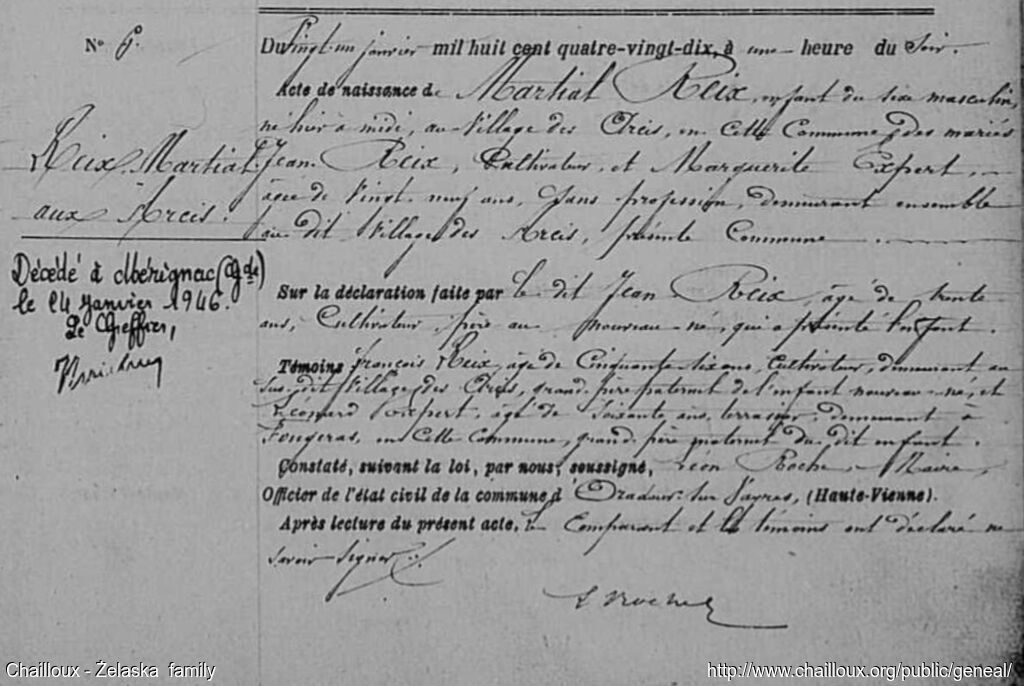 N° 6.
Reix Martial
aux Arcis.
Décédé à Mérignac (Gde)
le 24 janvier 1946.
Le Greffier,
Du vingt-un janvier mil huit cent quatre-vingt-dix, à une heure du soir.
Acte de naissance de Martial Reix, enfant du sexe masculin,
né hier à midi, au village des Arcis, en cette commune, des mariés
Jean Reix, cultivateur, et Marguerite Expert,
âgée de vingt-neuf ans, sans profession, demeurant ensemble
au dit village des Arcis, présente commune.
Sur la déclaration faite par le dit Jean Reix, âgé de trente
ans, cultivateur, père au nouveau-né, qui a présenté l'enfant.
Témoins François Reix, âgé de cinquante-six ans, cultivateur, demeurant au
sus-dit village des Arcis, grand-père paternel de l'enfant nouveau-né, et
Léonard Expert, âgé de soixante ans, terrassier, demeurant à
Fougeras, en cette commune, grand-père maternel du dit enfant.
Constaté, suivant la loi, par nous, soussigné, Léon Roche, Maire,
Officier de l'état civil de la commune d'Oradour-sur-Vayres, (Haute-Vienne).
Après lecture du présent acte, le comparant et les témoins ont déclaré ne
savoir signer.
L Roche
Chailloux - Żelaska family
http://www.chailloux.org/public/geneal/